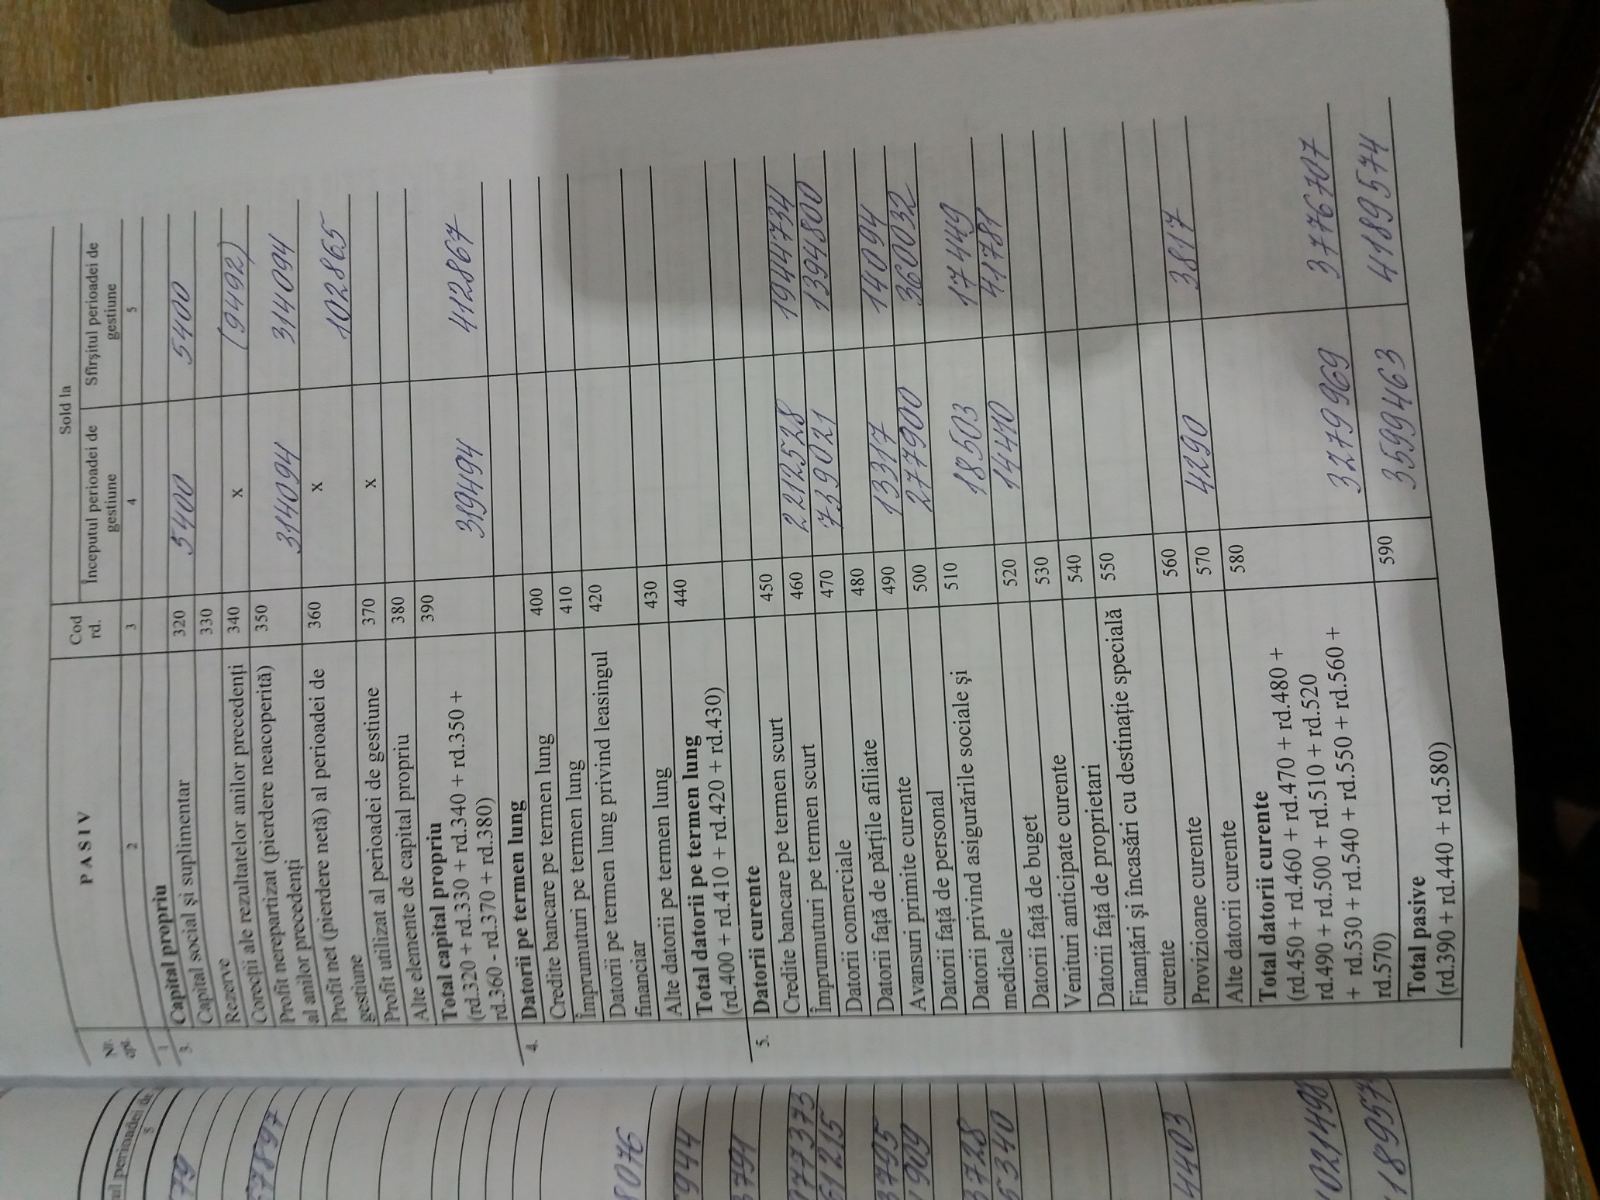 PASIV
Nr. crt.
Cod rd.
Sold la
Începutul perioadei de gestiune
Sfîrşitul perioadei de gestiune
1 2 3 4 5
3. Capital propriu
Capital social şi suplimentar 320 5400 5400
Rezerve 330
Corecţii ale rezultatelor anilor precedenţi 340 x (9492)
Profit nerepartizat (pierdere neacoperită) 350 314094 314094
al anilor precedenţi
Profit net (pierdere netă) al perioadei de 360 x 102865
gestiune
Profit utilizat al perioadei de gestiune 370 x
Alte elemente de capital propriu 380
Total capital propriu 390 319494 412867
(rd.320 + rd.330 + rd.340 + rd.350 +
rd.360 - rd.370 + rd.380)
4. Datorii pe termen lung
Credite bancare pe termen lung 400
Împrumuturi pe termen lung 410
Datorii pe termen lung privind leasingul 420
financiar
Alte datorii pe termen lung 430
Total datorii pe termen lung 440
(rd.400 + rd.410 + rd.420 + rd.430)
5. Datorii curente
Credite bancare pe termen scurt 450 2212528 1944734
Împrumuturi pe termen scurt 460 739021 1394800
Datorii comerciale 470
Datorii faţă de părţile afiliate 480 13317 14094
Avansuri primite curente 490 277900 360032
Datorii faţă de personal 500 18503 17449
Datorii privind asigurările sociale şi 510 14410 41781
medicale
Datorii faţă de buget 520
Venituri anticipate curente 530
Datorii faţă de proprietari 540
Finanţări şi încasări cu destinaţie specială 550
curente
Provizioane curente 560 4290 3817
Alte datorii curente 570
Total datorii curente 580 3279969 3776707
(rd.450 + rd.460 + rd.470 + rd.480 +
rd.490 + rd.500 + rd.510 + rd.520
+ rd.530 + rd.540 + rd.550 + rd.560 +
rd.570)
Total pasive 590 3599463 4189574
(rd.390 + rd.440 + rd.580)